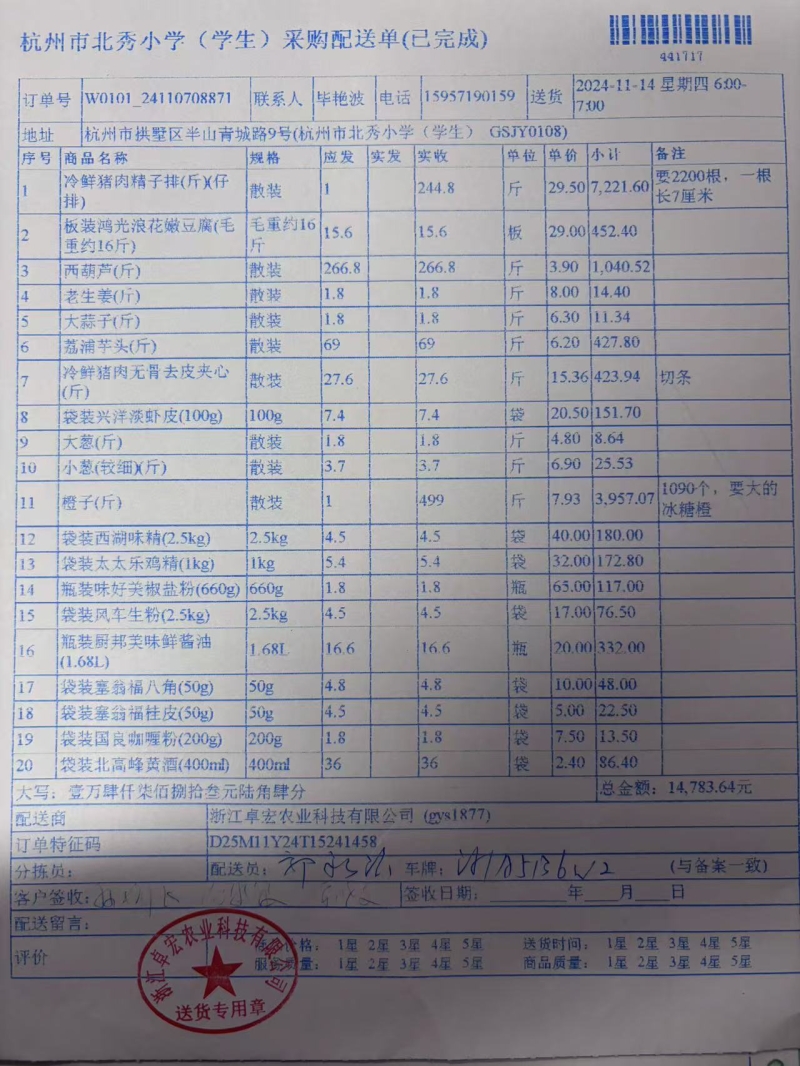 杭州市北秀小学（学生）采购配送单(已完成)
441717
订单号 W0101_24110708871 联系人 毕艳波 电话 15957190159 送货 2024-11-14 星期四 6:00-7:00
地址 杭州市拱墅区半山青城路9号(杭州市北秀小学（学生） GSJY0108)
序号 商品名称 规格 应发 实发 实收 单位 单价 小计 备注
1 冷鲜猪肉精子排(斤)(仔排) 散装 1 244.8 斤 29.50 7,221.60 要2200根，一根长7厘米
2 板装鸿光浪花嫩豆腐(毛重约16斤) 毛重约16斤 15.6 15.6 板 29.00 452.40
3 西葫芦(斤) 散装 266.8 266.8 斤 3.90 1,040.52
4 老生姜(斤) 散装 1.8 1.8 斤 8.00 14.40
5 大蒜子(斤) 散装 1.8 1.8 斤 6.30 11.34
6 荔浦芋头(斤) 散装 69 69 斤 6.20 427.80
7 冷鲜猪肉无骨去皮夹心(斤) 散装 27.6 27.6 斤 15.36 423.94 切条
8 袋装兴洋淡虾皮(100g) 100g 7.4 7.4 袋 20.50 151.70
9 大葱(斤) 散装 1.8 1.8 斤 4.80 8.64
10 小葱(较细)(斤) 散装 3.7 3.7 斤 6.90 25.53
11 橙子(斤) 散装 1 499 斤 7.93 3,957.07 1090个，要大的冰糖橙
12 袋装西湖味精(2.5kg) 2.5kg 4.5 4.5 袋 40.00 180.00
13 袋装太太乐鸡精(1kg) 1kg 5.4 5.4 袋 32.00 172.80
14 瓶装味好美椒盐粉(660g) 660g 1.8 1.8 瓶 65.00 117.00
15 袋装风车生粉(2.5kg) 2.5kg 4.5 4.5 袋 17.00 76.50
16 瓶装厨邦美味鲜酱油(1.68L) 1.68L 16.6 16.6 瓶 20.00 332.00
17 袋装塞翁福八角(50g) 50g 4.8 4.8 袋 10.00 48.00
18 袋装塞翁福桂皮(50g) 50g 4.5 4.5 袋 5.00 22.50
19 袋装国良咖喱粉(200g) 200g 1.8 1.8 袋 7.50 13.50
20 袋装北高峰黄酒(400ml) 400ml 36 36 袋 2.40 86.40
大写：壹万肆仟柒佰捌拾叁元陆角肆分 总金额：14,783.64元
配送商 浙江卓宏农业科技有限公司 (gys1877)
订单特征码 D25M11Y24T15241458
分拣员： 配送员： 车牌： (与备案一致)
客户签收： 签收日期：____年____月____日
配送留言：
评价 价格： 1星 2星 3星 4星 5星 送货时间： 1星 2星 3星 4星 5星
服务质量： 1星 2星 3星 4星 5星 商品质量： 1星 2星 3星 4星 5星
浙江卓宏农业科技有限公司
送货专用章